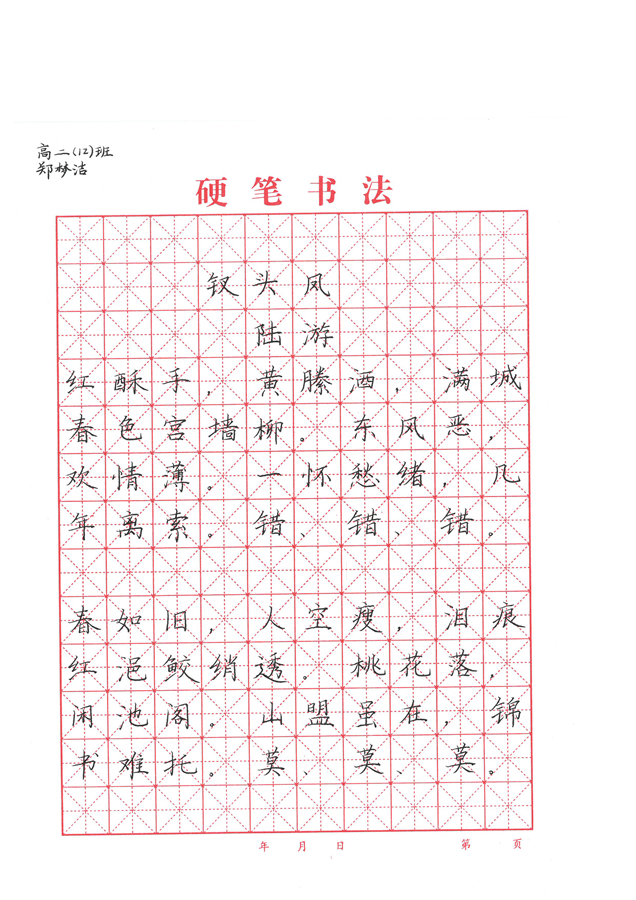 高二(12)班
郑梦洁
硬笔书法
钗头凤
陆游
红酥手，黄縢酒，满城
春色宫墙柳。东风恶，
欢情薄。一怀愁绪，几
年离索。错、错、错。
春如旧，人空瘦，泪痕
红浥鲛绡透。桃花落，
闲池阁。山盟虽在，锦
书难托。莫、莫、莫。
年 月 日 第 页